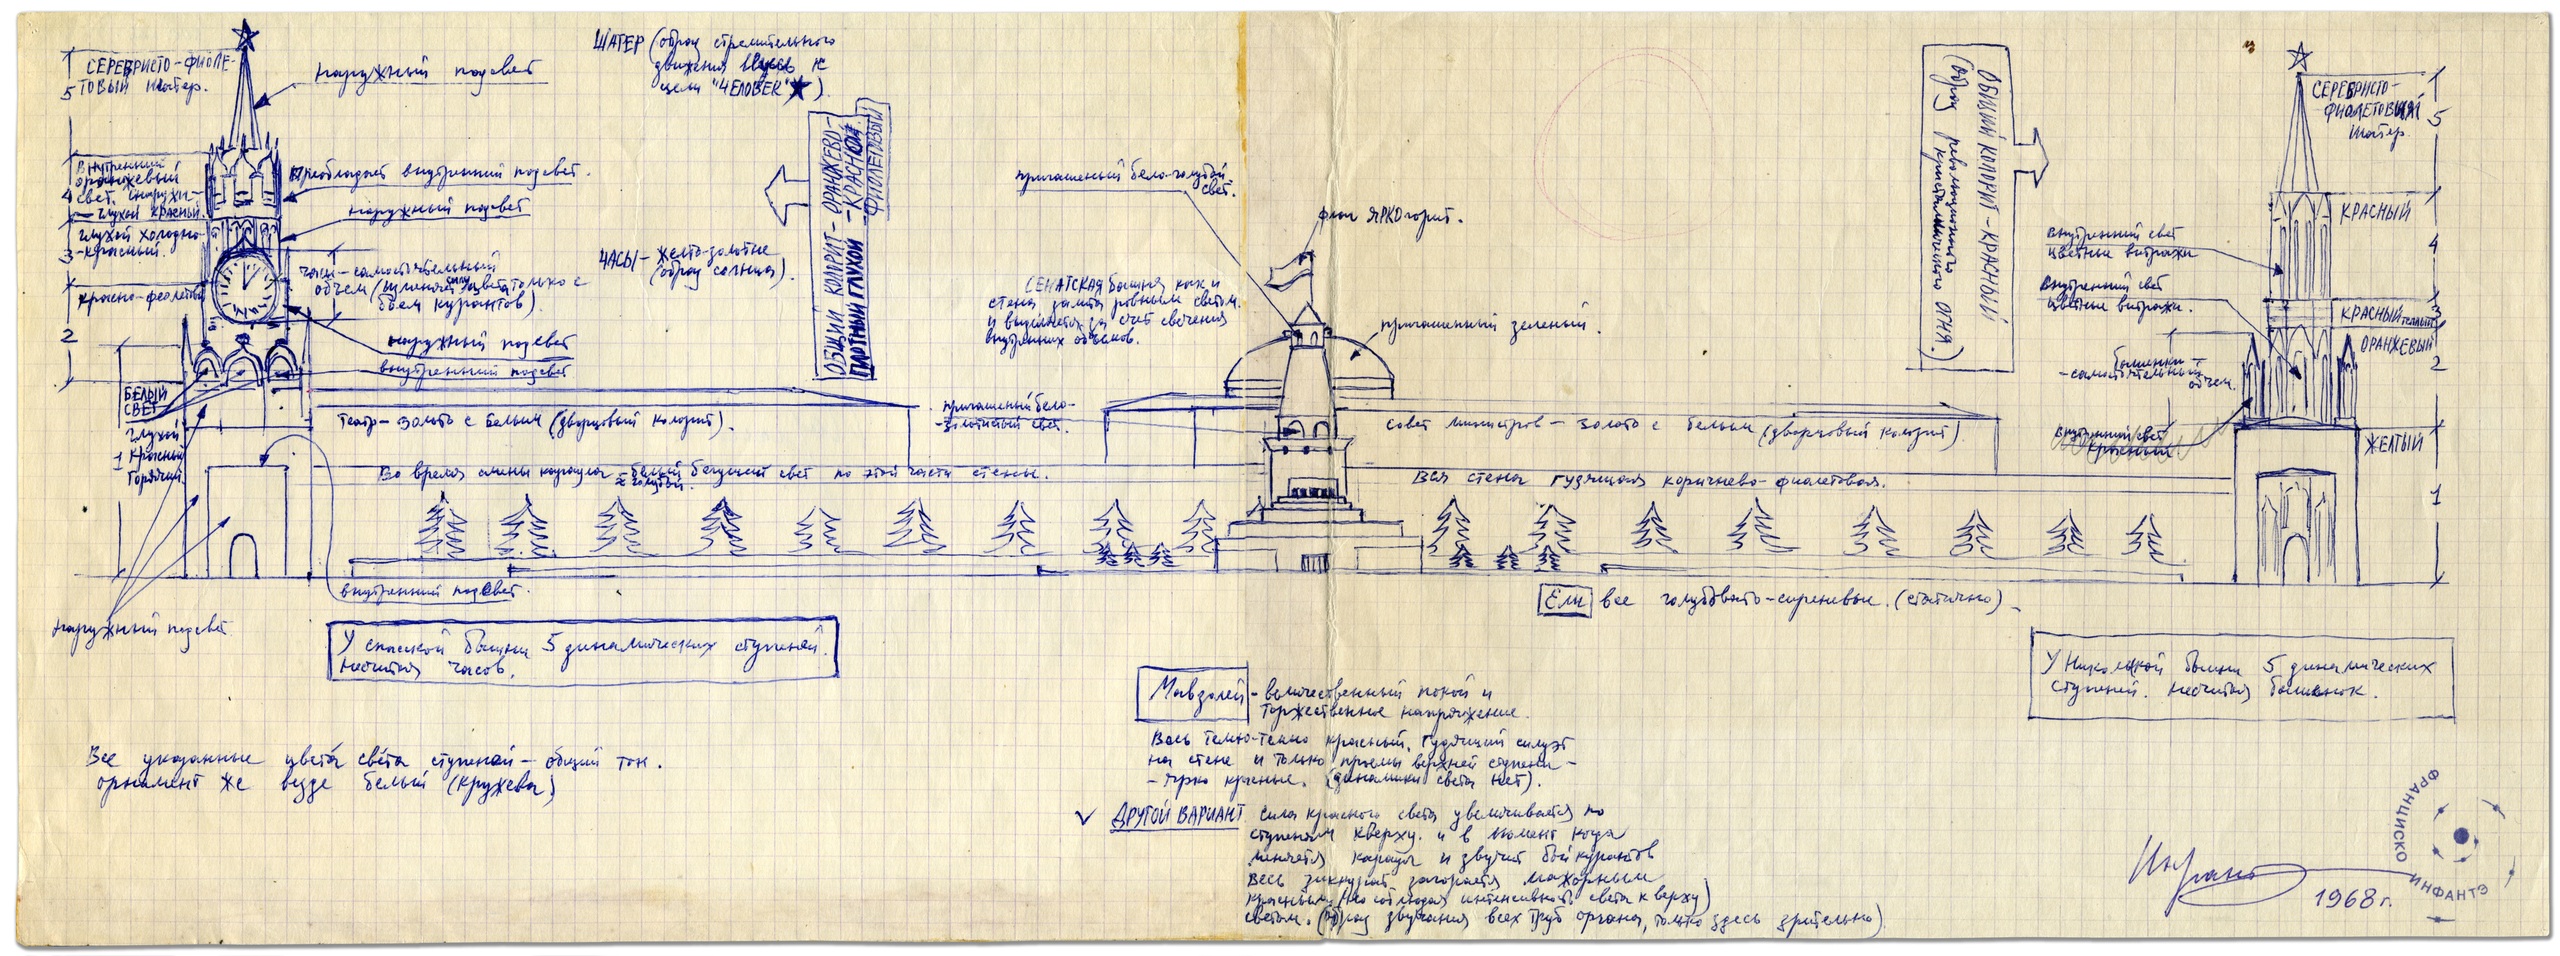 СЕРЕБРИСТО-ФИОЛЕ-
ТОВЫЙ шатер.
5
наружный подсвет
ШАТЕР (образ стремительного
движения ввысь к
цели "ЧЕЛОВЕК" ★).
Внутренний
оранжевый
4 свет. Снаружи-
- глухой красный.
Преобладает внутренний подсвет.
наружный подсвет
глухой холодно-
3 -красный.
часы-самостоятельный
объем
цвета только с
боем курантов).
ЧАСЫ - желто-золотые
(образ солнца).
красно-фиолетовый
2
наружный подсвет
внутренний подсвет
БЕЛЫЙ
СВЕТ
глухой
1 красный
горячий.
ОБЩИЙ КОЛОРИТ - ОРАНЖЕВО-
ПЛОТНЫЙ ГЛУХОЙ -КРАСНО-
ФИОЛЕТОВЫЙ
театр- золото с белым (дворцовый колорит).
Во время смены караула - белый бегущий свет по этой части стены.
≈ голубой.
внутренний подсвет.
наружный подсвет
У спасской башни 5 динамических ступеней.
несчитая часов.
Все указанные цвета́ све́та ступеней - общий тон.
орнамент же везде белый (кружева)
пригашеный бело-голубой
свет.
флаг ЯРКО горит.
СЕНАТСКАЯ башня как и
стена залита ровным светом.
и выделяется за счет свечения
внутренних объемов.
пригашенный зеленый.
пригашеный бело-
-золотистый свет.
совет министров - золото с белым (дворцовый колорит)
Вся стена гудящая коричнево-фиолетовая.
Ели все голубовато-сиреневые. (статично)
ОБЩИЙ КОЛОРИТ - КРАСНЫЙ
(образ революционного
кристаллического огня.)
СЕРЕБРИСТО-
-ФИОЛЕТОВЫЙ
шатер.
5
КРАСНЫЙ
4
внутренний свет
цветные витражи
Внутренний свет
цветные витражи.
КРАСНЫЙ
3
ОРАНЖЕВЫЙ
2
башенки -
-самостоятельный
объем.
внутренний свет
красный
ЖЕЛТЫЙ
1
У Никольской башни 5 динамических
ступеней. несчитая башенок.
Мавзолей - величественный покой и
торжественное напряжение.
Весь темно-темно красный. Гудящий силуэт
на стене и только проемы верхней ступени -
- ярко красные. (динамики света нет).
√ ДРУГОЙ ВАРИАНТ сила красного света увеличивается по
ступеням кверху. и в момент когда
меняется караул и звучит бой курантов
весь зиккурат загорается мажорным
красным (но соблюдая интенсивность света к верху)
светом. (образ звучания всех труб органа, только здесь зрительно)
Инфантэ
1968 г.
ФРАНЦИСКО ИНФАНТЭ